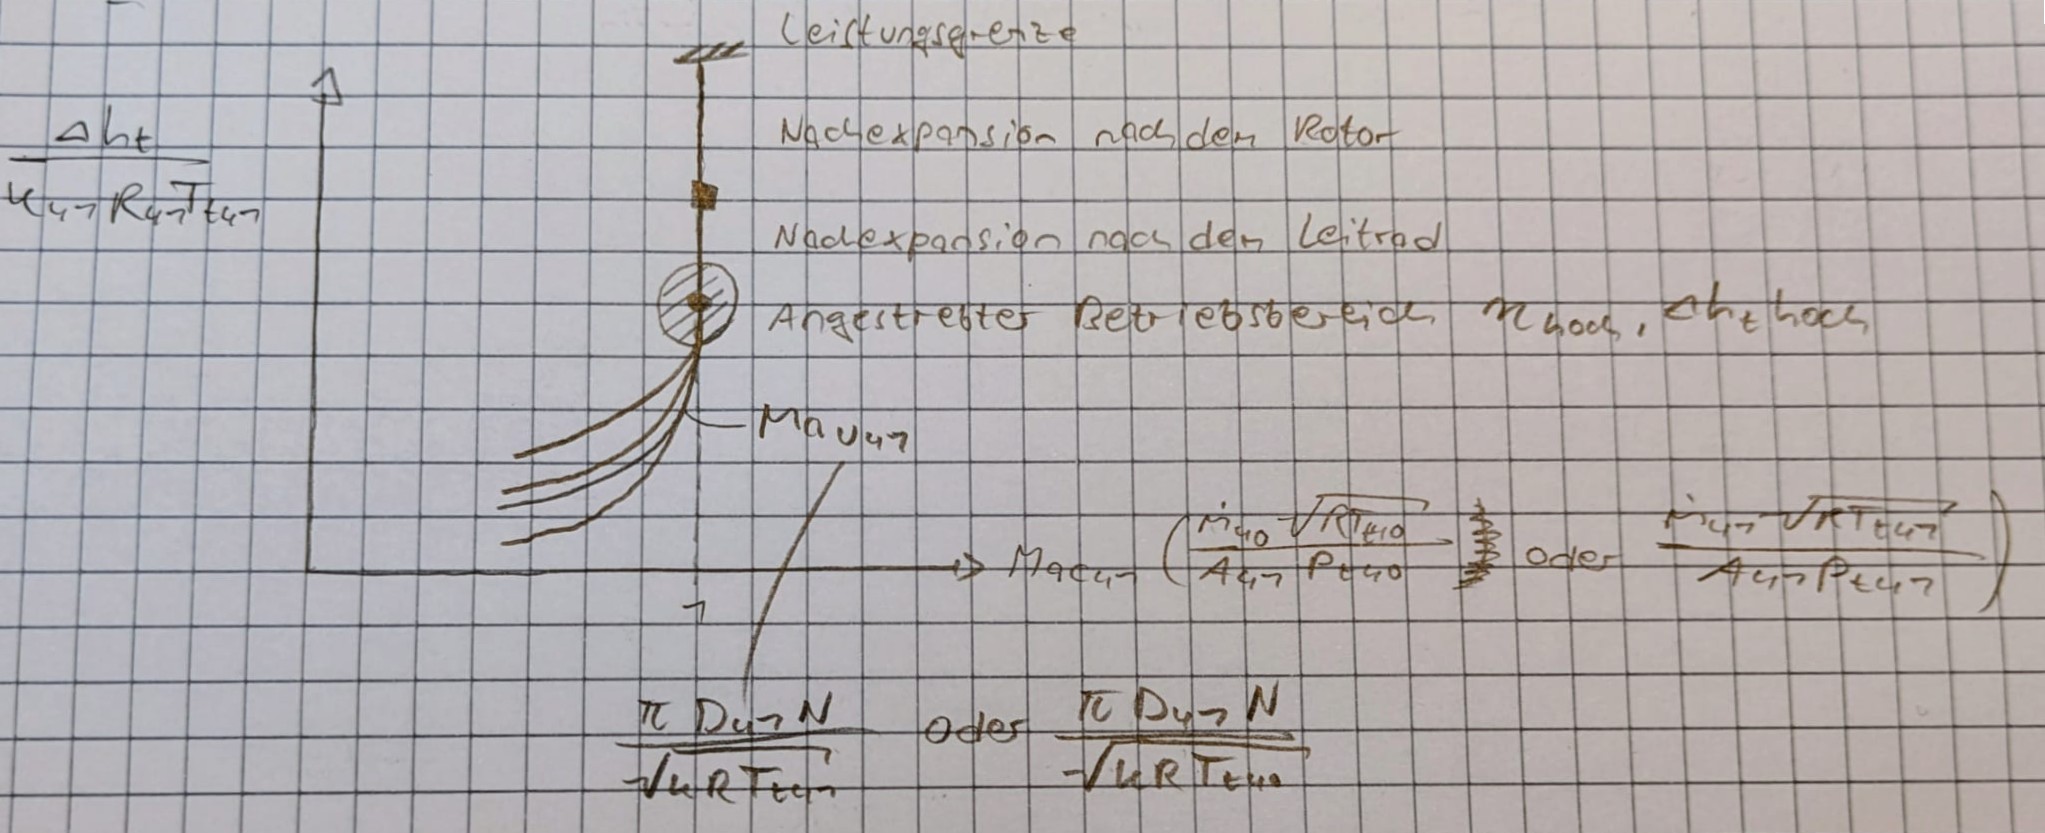 Leistungsgrenze
Δht
κ41 R41 Tt41
Nachexpansion nach dem Rotor
Nachexpansion nach dem Leitrad
Angestrebter Betriebsbereich η hoch, Δht hoch
Mau41
Mac41 (ṁ40 √RTt40 / A41 Pt40 oder ṁ41 √RTt41 / A41 Pt41)
1
π D41 N / √κRTt41 oder π D41 N / √κRTt40